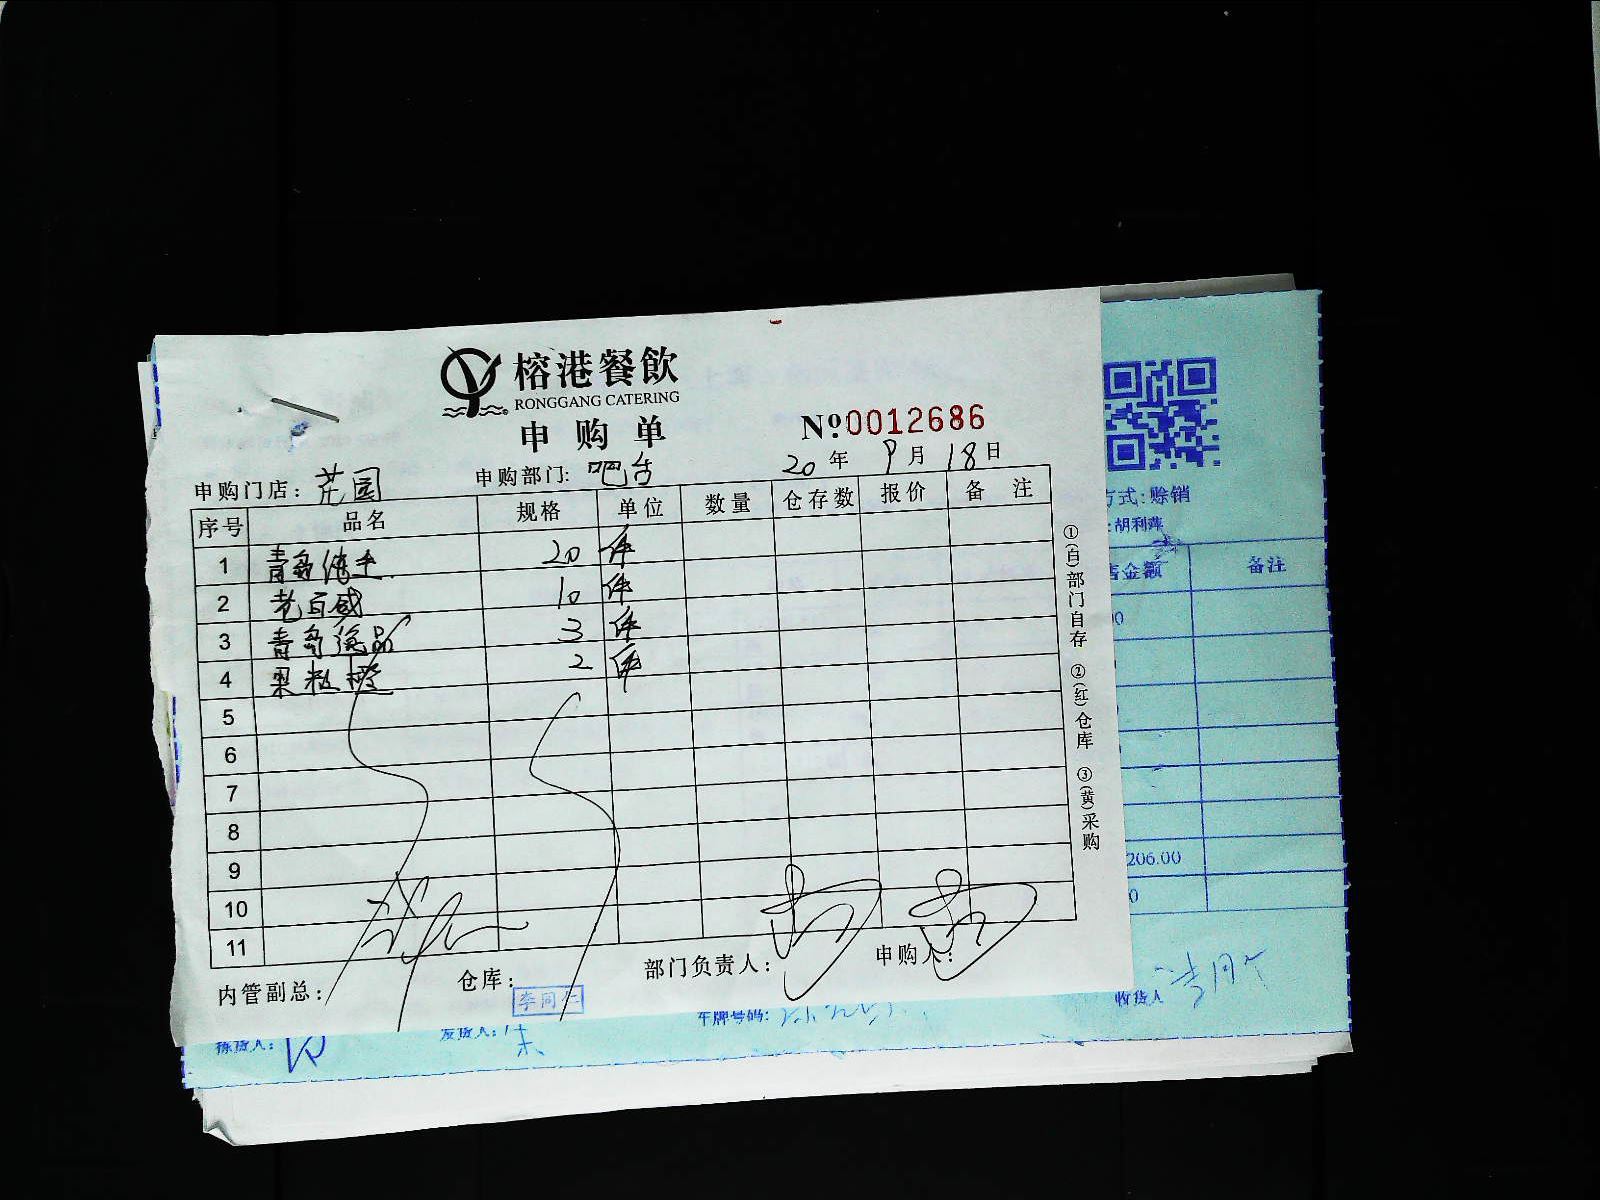 榕港餐飲
RONGGANG CATERING
申购单
№0012686
申购门店：花园 申购部门：吧台 20年9月18日
序号 品名 规格 单位 数量 仓存数 报价 备注
1 青岛纯生 20 件
2 老百威 10 件
3 青岛逸品 3 件
4 果粒橙 2 件
5
6
7
8
9
10
11
内管副总： 仓库： 部门负责人： 申购人：
①(白)部门自存 ②(红)仓库 ③(黄)采购
李同仁
方式：赊销
：胡利萍
售金额 备注
206.00
拣货人： 发货人： 朱 车牌号码： 收货人